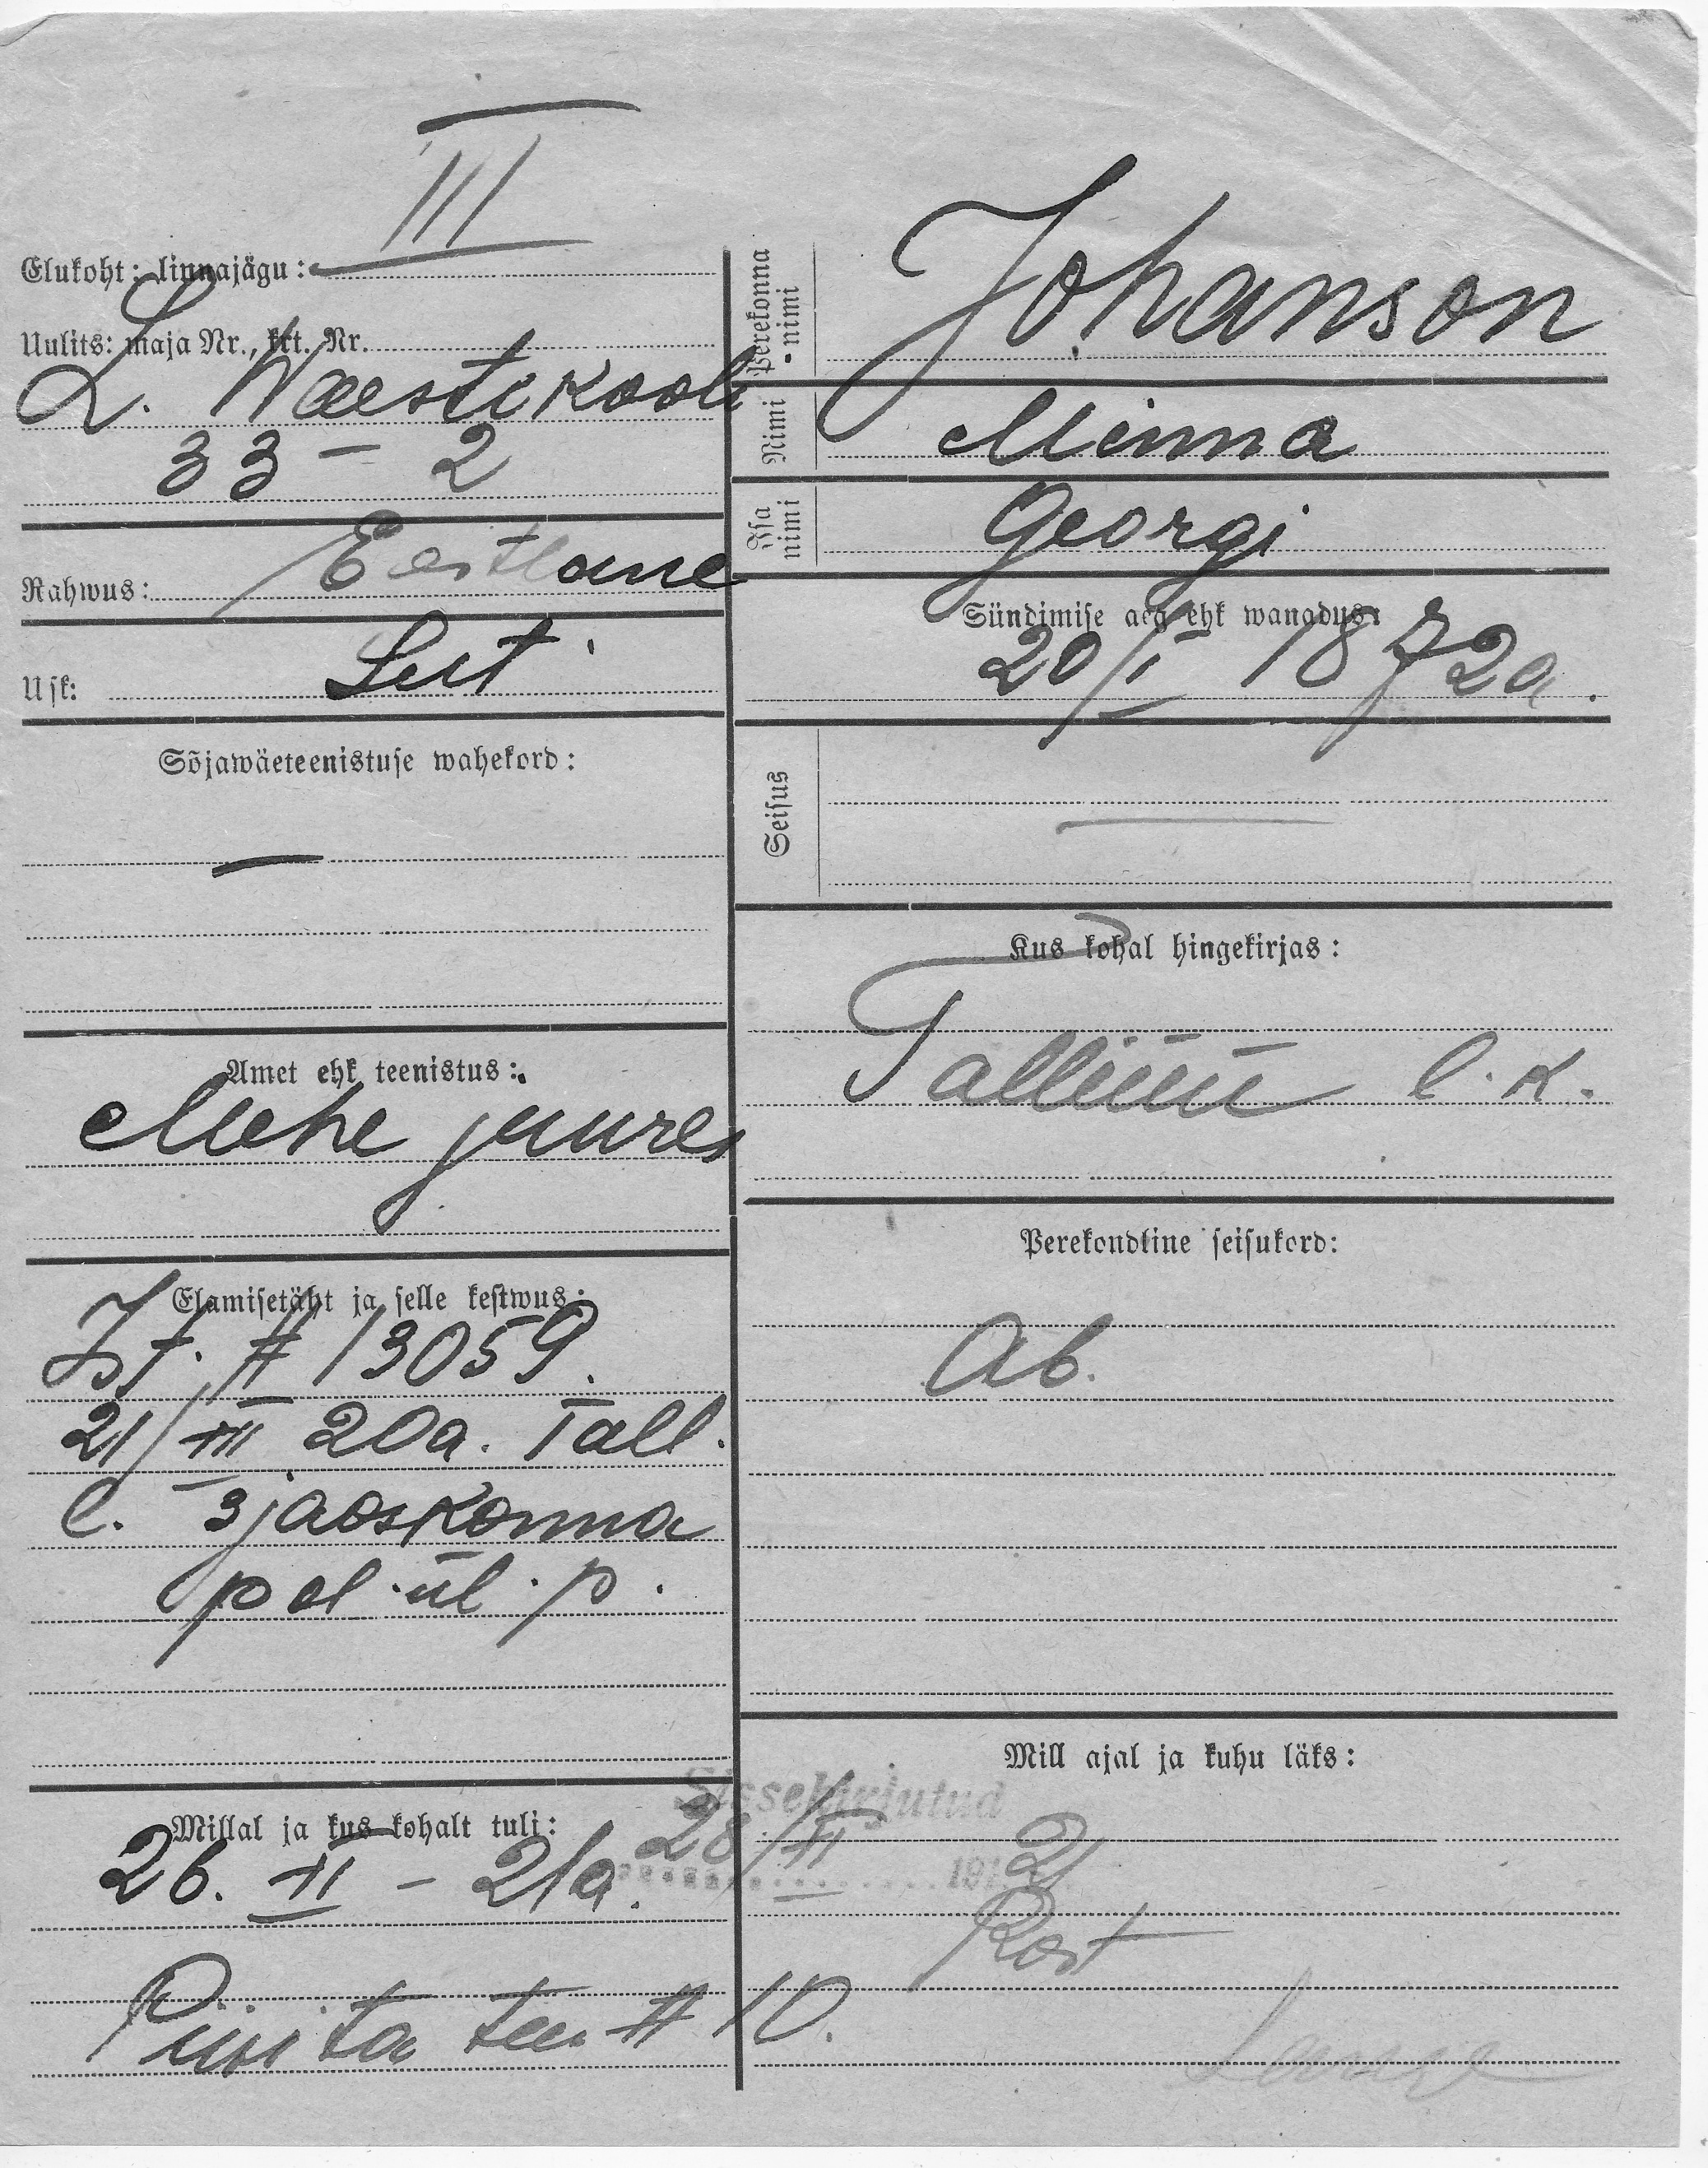 III
Elukoht: linnajagu:
Uulits: maja Nr., krt. Nr.
L. Waestekooli
33 – 2
Rahwus: Eestlane
Usk: Lut
Sõjawäeteenistuse wahekord:
—
Amet ehk teenistus:
Mehe juures
Elamisetäht ja selle kestwus:
Ist. # 13059.
21/XII 20a. Tall.
l. 3 jaoskonna
pol. ül. p.
Millal ja kus kohalt tuli:
26. II – 21a.
Piirita tee # 10.
Perekonna-nimi
Johanson
Nimi
Minna
Isa nimi
Georgi
Sündimise aeg ehk wanadus:
20/I 1872a.
Seisus
—
Kus kohal hingekirjas:
Tallinna l. k.
Perekondline seisukord:
Ab.
Mill ajal ja kuhu läks:
Sissekirjutud
28/II 191 21
Rost